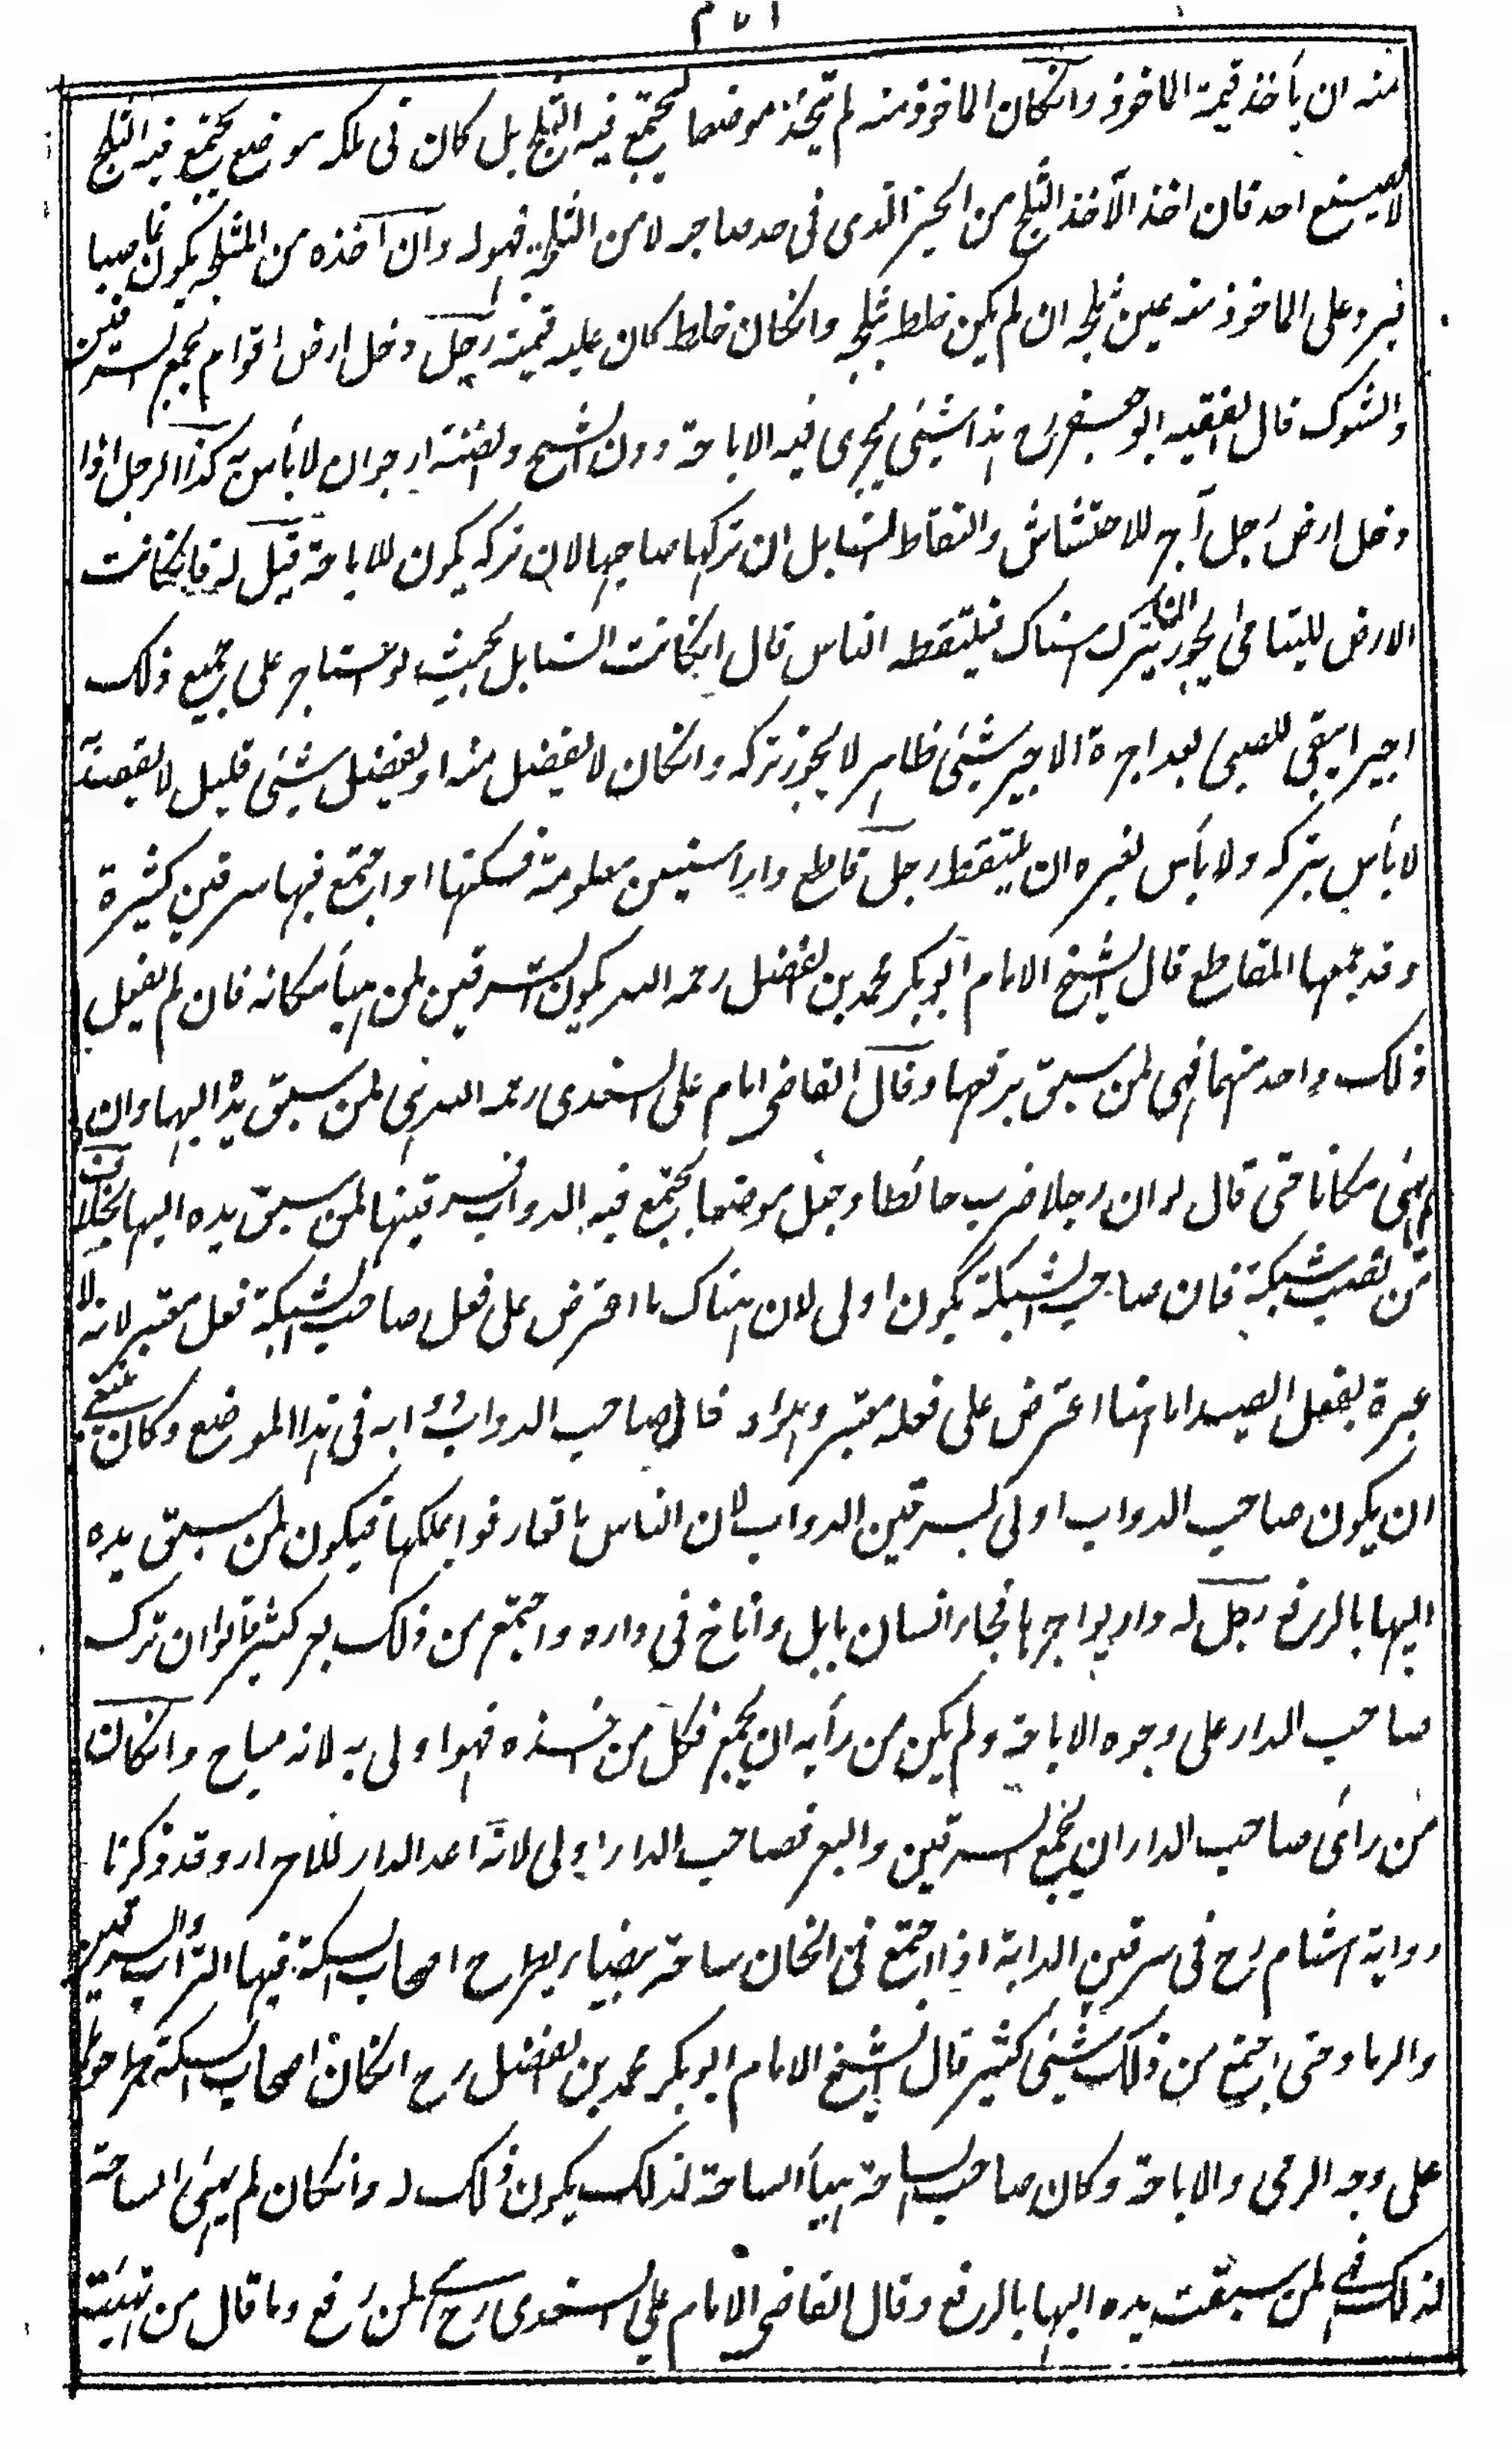 منه ان يأخذ قيمة الماخوذ وانكان الماخوذ منه لم يتخذ موضعا يجتمع فيه الثلج بل كان فى ملكه موضع يجتمع فيه الثلج
لا بصنع احد فان اخذ الآخذ الثلج من الحيز الذى فى حد صاحبه لا من المثلجة فهو له وان اخذه من المثلجة يكون غاصبا
فيرد على الماخوذ منه عين ثلجه ان لم يكن خلط بثلجه وانكان خلط كان عليه قيمته رجل دخل ارض اقوام يجمع السرقين
والشوك قال الفقيه ابو جعفر رح هذا شيئى يجرى فيه الاباحة دون الشح والضنة ارجو ان لا بأس به كذا الرجل اذا
دخل ارض رجل آج للاحتشاش والتقاط السنابل ان تركها صاحبها لان تركه يكون للاباحة قيل له فانكانت
الارض لليتامى ايجوز ان يترك هناك فيلتقطه الناس قال انكانت السنابل بحيث لو استاجر على جميع ذلك
اجيرا يبقى للصبى بعد اجرة الاجير شيئى ظاهر لا يجوز تركه وانكان لا يفضل منه او يفضل شيئى قليل لا يقصد
لا بأس بتركه ولا بأس لغيره ان يلتقط رجل قاطع دارا سنين معلومة فسكنها واجتمع فيها سرقين كثيرة
وقد جمعها المقاطع قال الشيخ الامام ابو بكر محمد بن الفضل رحمه الله يكون السرقين لمن هيأ مكانه فان لم يفعل
ذلك واحد منهما فهى لمن سبق برفعها وقال القاضى امام على السغدى رحمه الله هى لمن سبق يده اليها وان
هيئ مكانا حتى قال لو ان رجلا ضرب حائطا وجعل موضعا يجتمع فيه الدواب فسرقينها لمن سبق يده اليها بخلاف
من نصب شبكة فان صاحب الشبكة يكون اولى لان هناك ما اعترض على فعل صاحب الشبكة فعل معتبر لانه لا
عبرة بفعل الصيد اما هنا اعترض على فعله معتبر وهو ادخال صاحب الدواب دوابه فى هذا الموضع وكان ينبغى
ان يكون صاحب الدواب اولى بسرقين الدواب لان الناس ما تعارفوا بملكها فيكون لمن سبق يده
اليها بالرفع رجل له دار يواجرها فجاء انسان بابل واناخ فى داره واجتمع من ذلك بعر كثير قالوا ان ترك
صاحب الدار على وجوه الاباحة ولم يكن من رأيه ان يجمع فكل من اخذه فهو اولى به لانه مباح وانكان
من رأى صاحب الدار ان يجمع السرقين والبعر فصاحب الدار اولى لانه اعد الدار للاحراز وقد ذكرنا
رواية هشام رح فى سرقين الدابة اذا اجتمع فى الخان ساحة بيضاء يطرح اصحاب السكة فيها التراب والسرقين
والرماد حتى اجتمع من ذلك شيئى كثير قال الشيخ الامام ابو بكر محمد بن الفضل رح انكان اصحاب السكة طرحوها
على وجه الرمى والاباحة وكان صاحب الساحة هيأ الساحة لذلك يكون ذلك له وانكان لم يهيئ الساحة
لذلك فهى لمن سبقت يده اليها بالرفع وقال القاضى الامام على السغدى رح هى لمن رفع وما قال من تهيئة